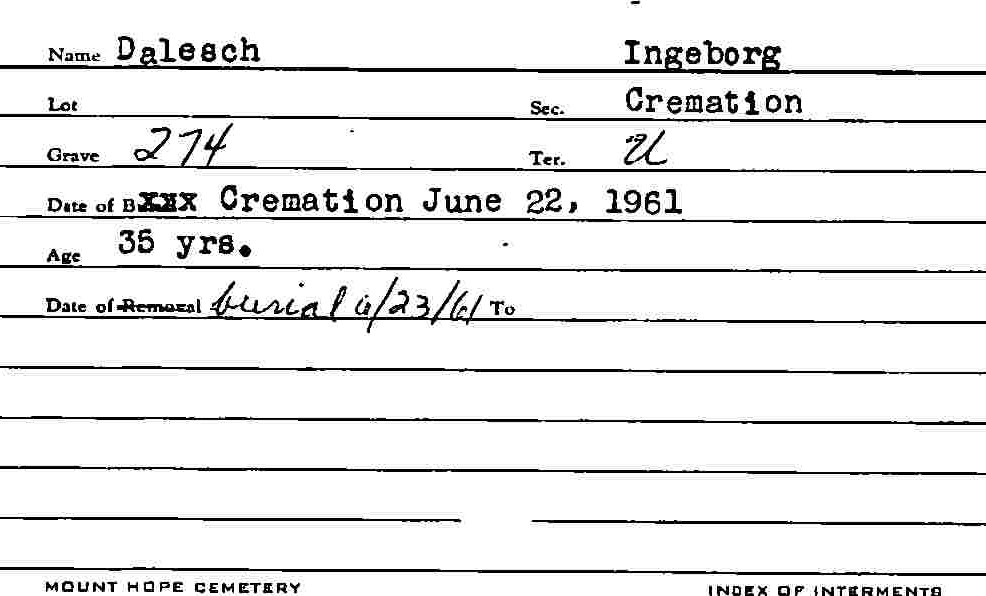 Name Dalesch Ingeborg
Lot Sec. Cremation
Grave 274 Ter. U
Date of Bxxx Cremation June 22, 1961
Age 35 yrs.
Date of Removal burial 6/23/61 To
MOUNT HOPE CEMETERY INDEX OF INTERMENTS